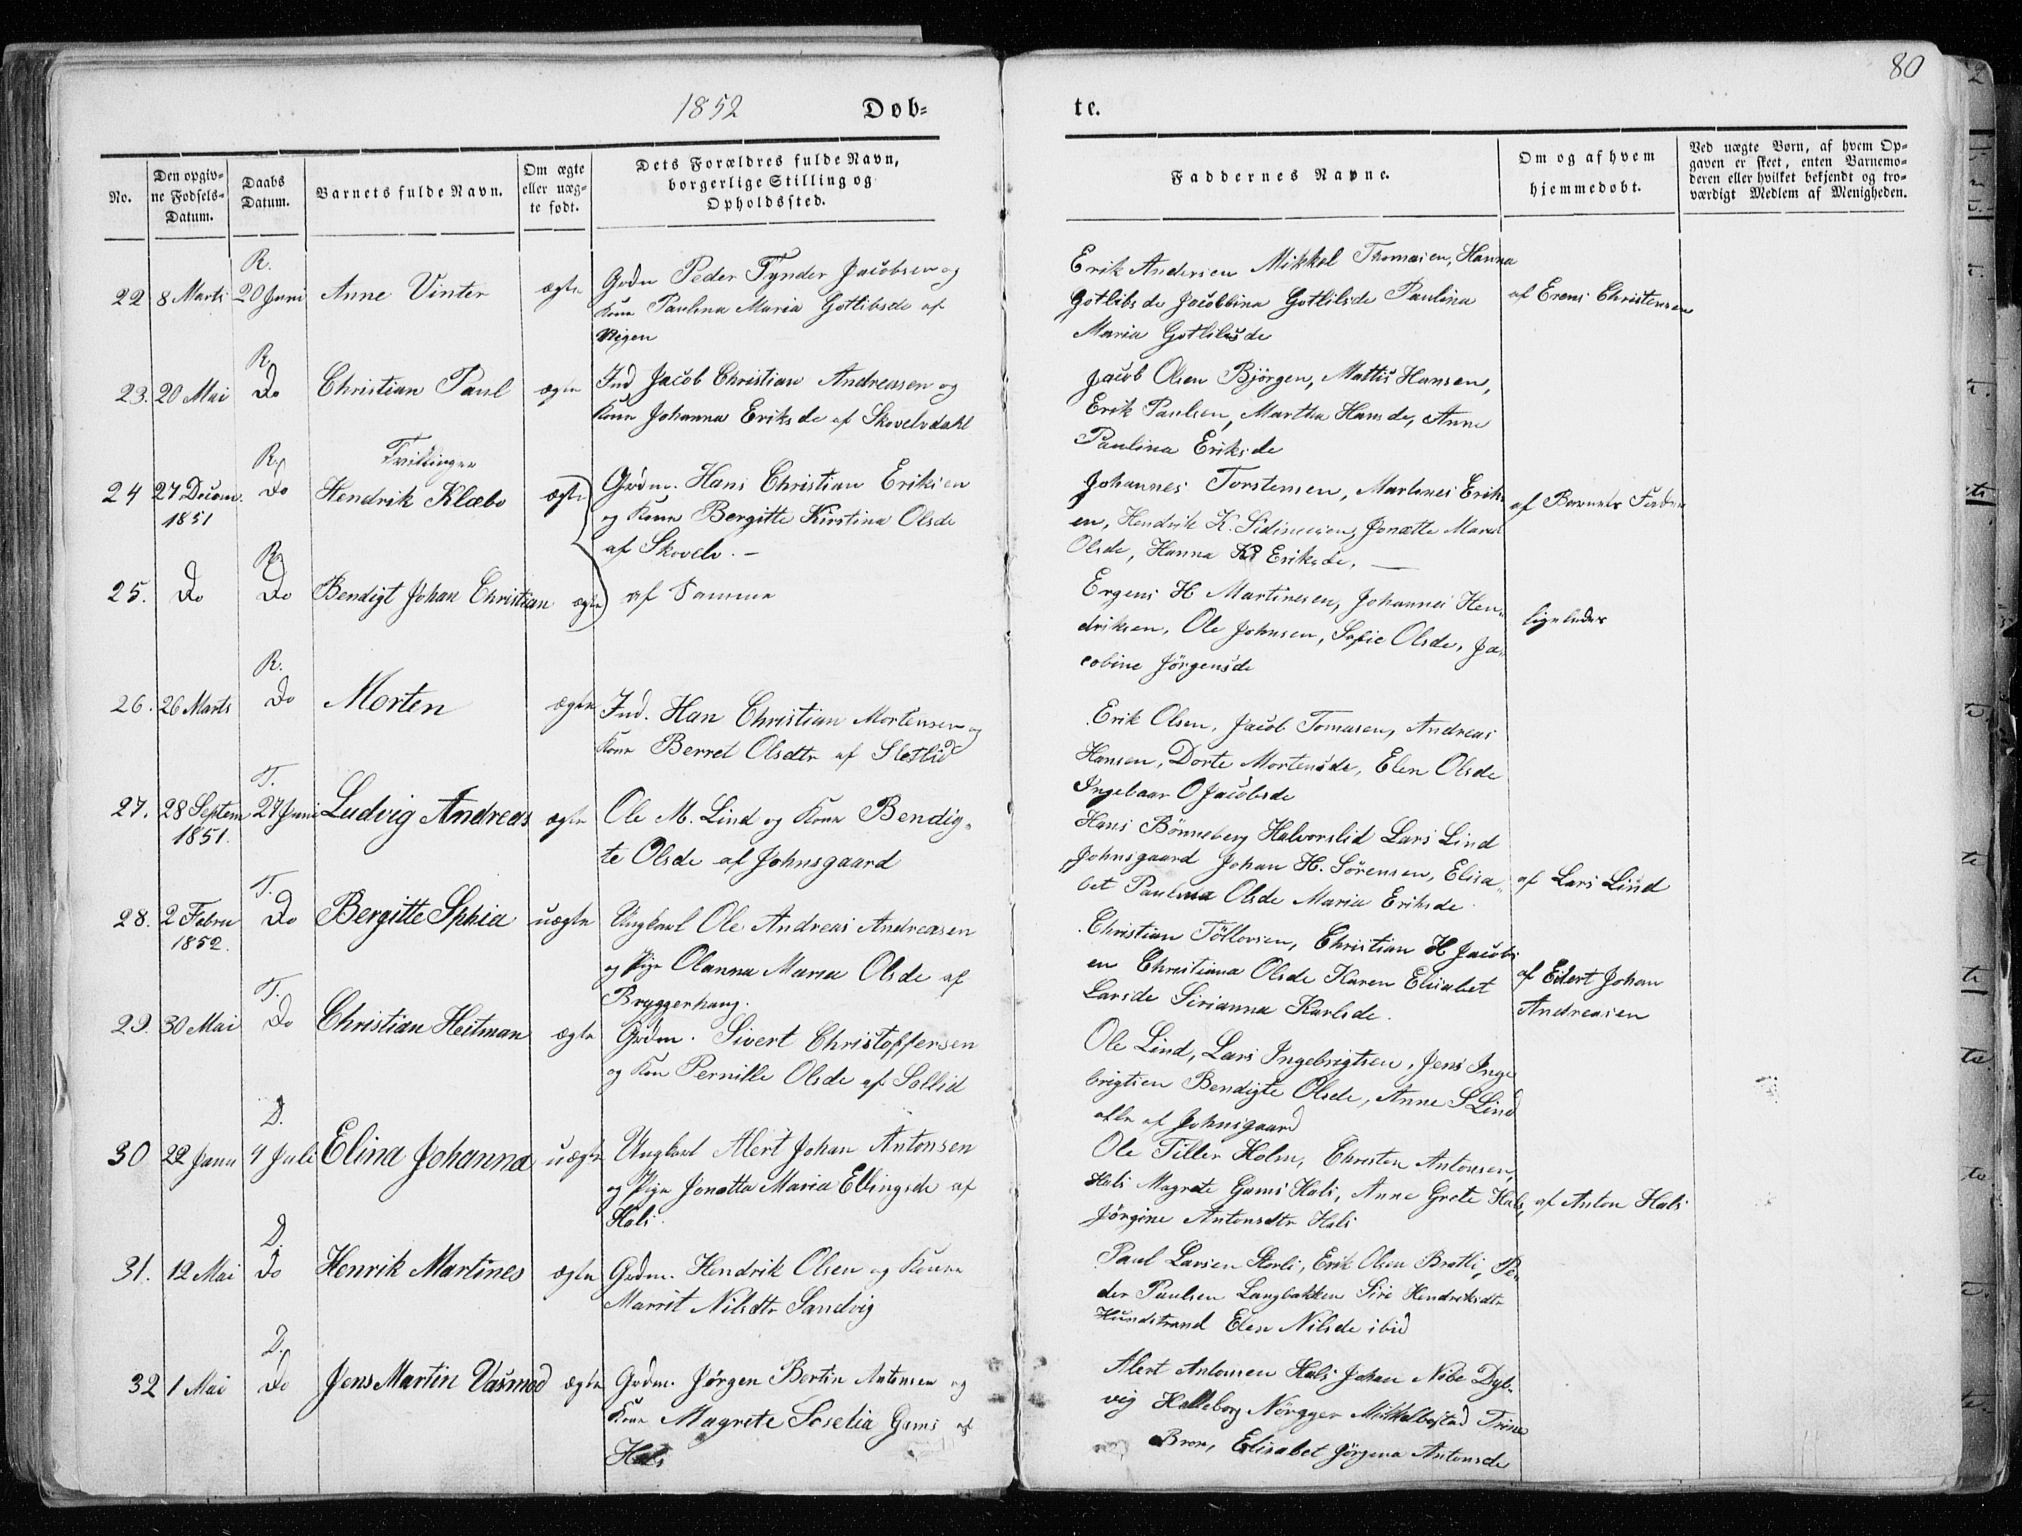 80
1852 Døb=
te.
No.
Den opgiv-
ne Fødsels-
Datum.
Daabs
Datum.
Barnets fulde Navn.
Om ægte
eller uæg-
te født.
Dets Forældres fulde Navn,
borgerlige Stilling og
Opholdssted.
Faddernes Navne.
Om og af hvem
hjemmedøbt.
Ved uægte Børn, af hvem Op-
gaven er skeet, enten Barnemo-
deren eller hvilket bekjendt og tro-
værdigt Medlem af Menigheden.
R.
22 8 Marts 20 Juni Anne Vinter ægte Grdm Peder Tynder Jacobsen og
Kone Paulina Maria Gotlibsde af
Erik Andersen Mikkel Thomasen, Hanna
Gotlibsde Jacobbina Gotlibsde Paulina
Maria Gotlibsde
af Erens Christensen
R.
23. 20 Mai Do Christian Paul ægte Ind Jacob Christian Andreasen og
Kone Johanna Eriksde af Skovelvdahl
Jacob Olsen Bjørgen, Mattis Hansen,
Erik Paulsen, Martha Hansde, Anne
Paulina Eriksde
R. Tvillinger
24 27 Decem. Do Hendrik Klæbo ægte Grdm. Hans Christian Eriksen
1851 og Kone Bergitte Kirstina Olsde
af Skovelv. —
Johannes Torstensen, Martines Eriks
en, Hendrik K. Jonætte Maria
Olsde, Hanna Eriksde, —
af Barnets Fader
R.
25. Do Do Bendigt Johan Christian ægte af Samme
Ergens H Martinesen, Johannes Hen-
driksen, Ole Johnsen, Sofie Olsde, Ja-
cobine Jørgensde
ligeledes
R.
26. 26 Marts Do Morten ægte Ind. Han Christian Mortensen og
Kone Berret Olsdtr af Sletlid
Erik Olsen, Jacob Tomasen, Andreas
Hansen, Dorte Mortensde, Elen Olsde
Ingebaar O Jacobsde
T.
27. 28 Septem 27 Juni Ludvig Andreas ægte Ole M. Lind og Kone Bendig-
1851. te Olsde af Johnsgaard
Hans Bønneberg Halvorslid Lars Lind
Johnsgaard Johan H. Sørensen, Elisa-
bet Paulina Olsde Maria Eriksde
af Lars Lind
T.
28. 2 Febru Do Bergitte Sphia uægte Ungkarl Ole Andreas Andreasen
1852. og Pige Olanna Maria Olsde af
Bryggerhaug.
Christian Tøllovsen, Christian H Jacobs
en Christiana Olsde Karen Elisabet
Larsde Sirianna Karlsde.
af Edert Johan
Andreasen
T.
29. 30 Mai Do Christian Heitman ægte Grdm. Sivert Christoffersen
og Kon Pernille Olsde af Sollid
Ole Lind, Lars Ingebrigtsen, Jens Inge
brigtsen Bendigte Olsde, Anne S Lind
alle af Johnsgaard
D.
30 22 Janu 4 Juli Elina Johanna uægte Ungkarl Alert Johan Antonsen
og Pige Jonetta Maria Ellingsde af
Hals.
Ole Tiller Holm, Christen Antonsen,
Hals Magrete Gams Hals, Anne Grete Hals,
Jørgine Antonsdtr Hals
af Anton Hals
D.
31. 12 Mai Do Henrik Martines ægte Grdm. Hendrik Olsen og Kone
Marrit Nilsdtr Sandvig
Paul Larsen Storli, Erik Olsen Bratli, Pe-
der Paulsen Langbakken Siri Hendriksdtr
Hundstrand Elen Nilsde ibid
D.
32 1 Mai Do Jens Martin Vasmod ægte Grdm. Jørgen Bertin Antonsen og
Kone Magrete Goms af
Hals
Alert Antonsen Hals Johan Nibe Dyb-
vig Helleborg Nørgger Mikkelbostad Trine
Bron, Elisabet Jørgena Antonsde